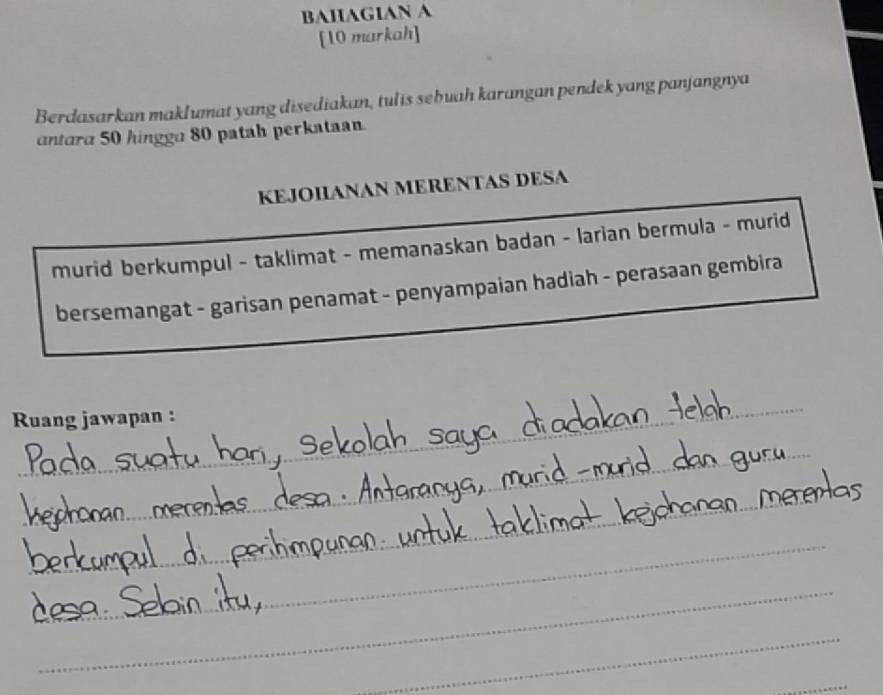 BAHAGIAN A
[10 markah]
Berdasarkan maklumat yang disediakan, tulis sebuah karangan pendek yang panjangnya
antara 50 hingga 80 patah perkataan.
KEJOHANAN MERENTAS DESA
murid berkumpul - taklimat - memanaskan badan - larian bermula - murid
bersemangat - garisan penamat - penyampaian hadiah - perasaan gembira
Ruang jawapan :
Pada suatu hari, sekolah saya diadakan telah
kejohanan merentas desa. Antaranya, murid-murid dan guru
berkumpul di perhimpunan untuk taklimat kejohanan merentas
desa. Selain itu,